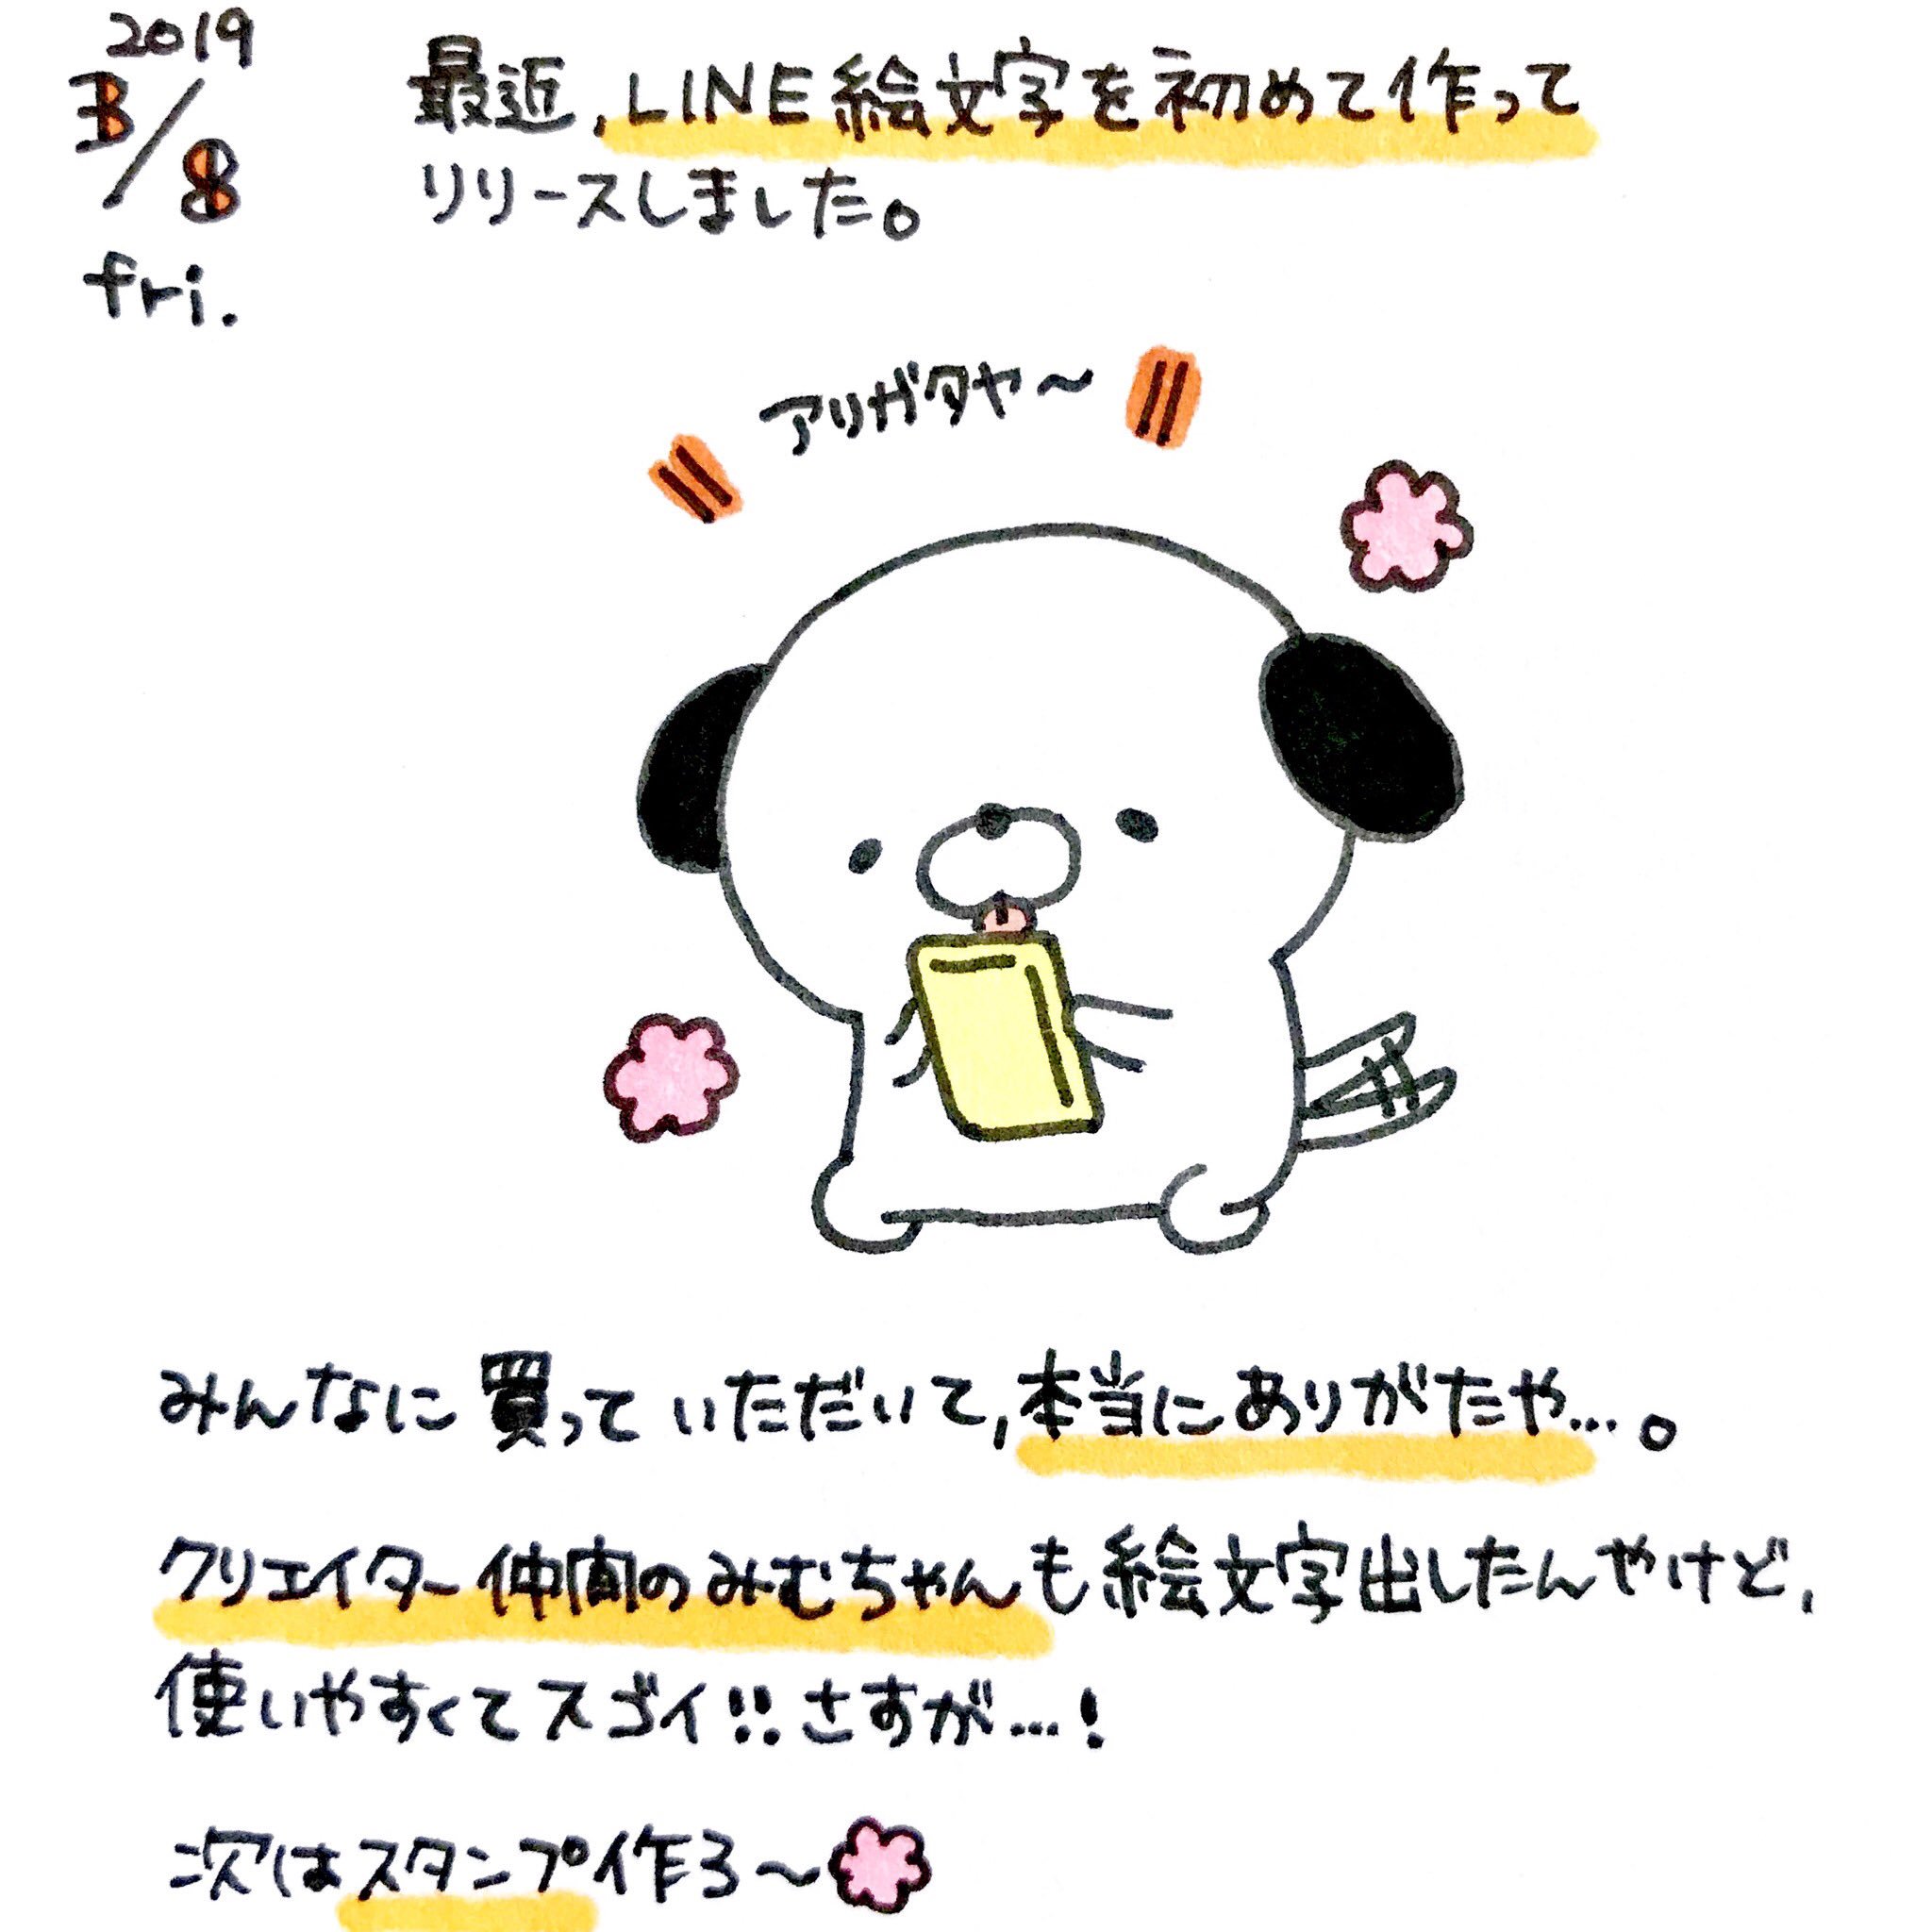 2019
3/8
fri.
最近,LINE絵文字を初めて作って
リリースしました。
アリガタヤ〜
みんなに買っていただいて,本当にありがたや…。
クリエイター仲間のみむちゃんも絵文字出したんやけど,
使いやすくてスゴイ!!さすが…!
次はスタンプ作ろ〜